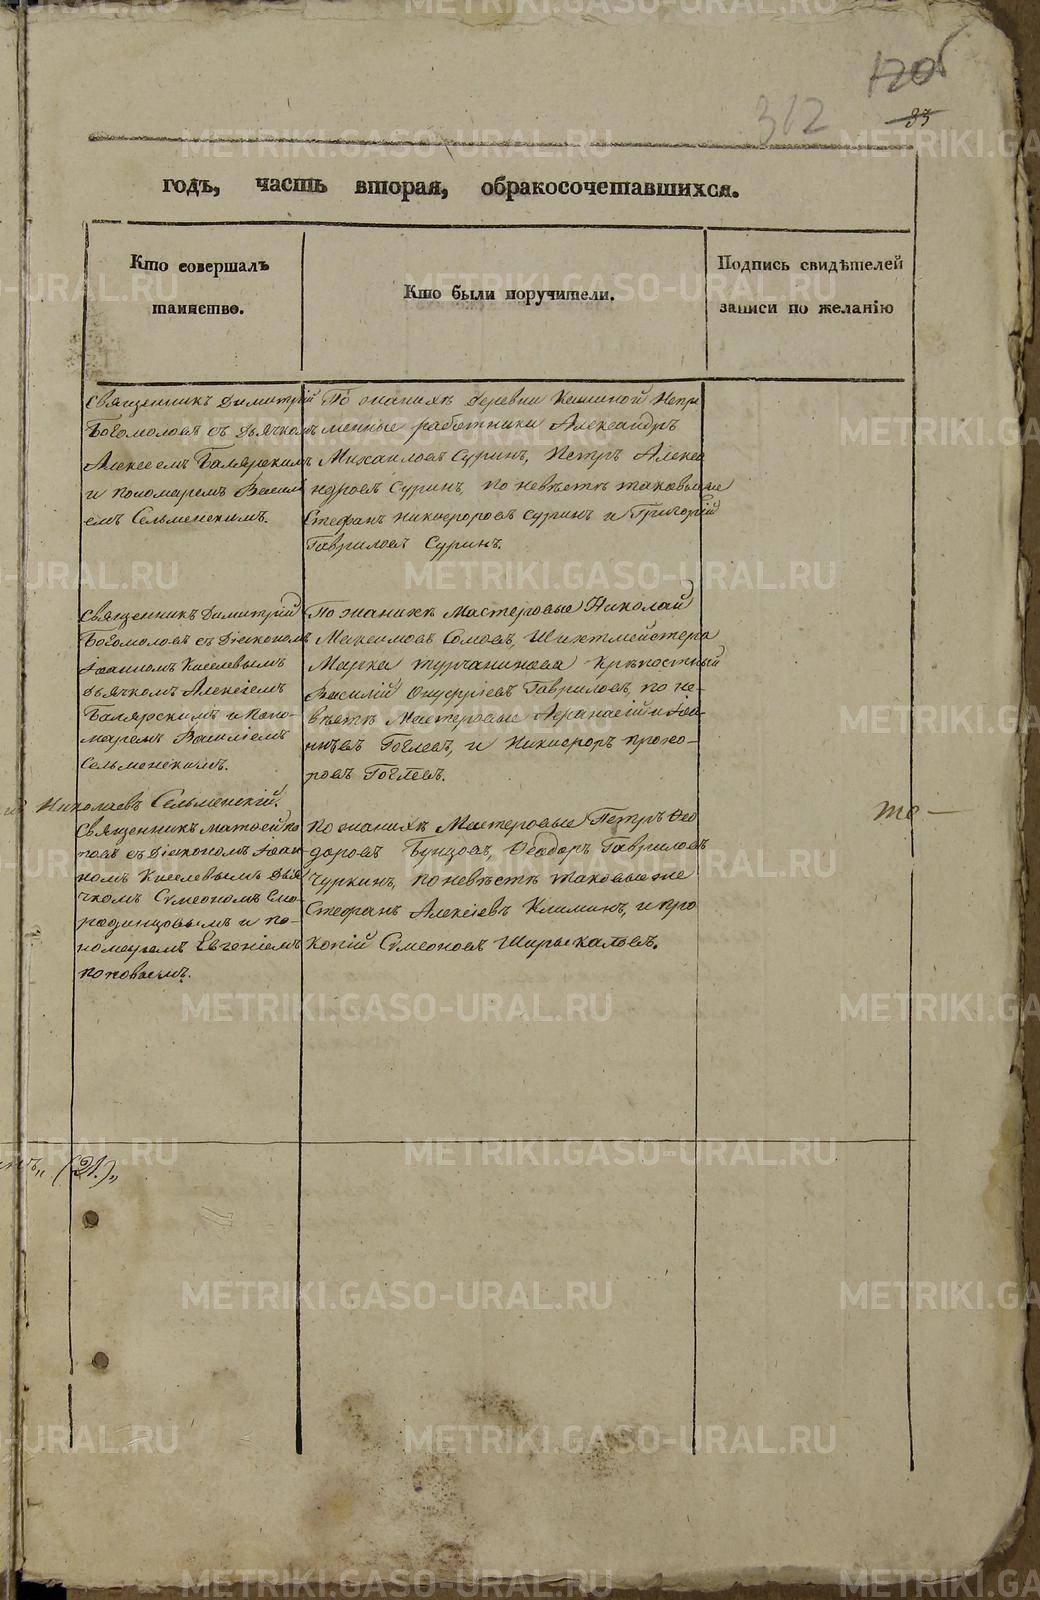 312
120б
83
годъ, часть вторая, обракосочетавшихся.
Кто совершалъ
таинство.
Кто были поручители.
Подпись свидѣтелей
записи по желанію
Священникъ Димитрій
Богомоловъ съ дьячкомъ
Алексеемъ Балярскимъ
и пономаремъ Васили
емъ Сельменскимъ.
По женихѣ деревни Кешиной Непре
менные работники Александръ
Михаиловъ Суринъ, Петръ Алекса
ндровъ Суринъ, по невѣстѣ таковые же
Стефанъ Никифоровъ Суринъ и Григорій
Гавриловъ Суринъ.
Священникъ Димитрій
Богомоловъ съ Діакономъ
Іоанномъ Киселевымъ
дьячкомъ Алексіемъ
Балярскимъ и Поно-
маремъ Василіемъ
Сельменскимъ.
По женихѣ Мастеровые Николай
Максимовъ Сомовъ, Шихтмейстера
Марка Турчанинова Крѣпостный
Василій Онуфріевъ Гавриловъ, по не-
вѣстѣ Мастеровые Афанасій и Іоа-
нъ Гоглевъ, и Никифоръ Прохо-
ровъ Гоглевъ.
Николаевъ Сельменскій.
Священникъ Матфей По
повъ съ Діакономъ Іоан
номъ Киселевымъ Дья
чкомъ Сумеономъ Смо
родинцовымъ и по-
номаремъ Евгеніемъ
Поповымъ.
По женихѣ Мастеровые Петръ Ѳео
доровъ Бунцовъ, Ѳеодоръ Гавриловъ
Чуркинъ, по невѣстѣ таковые же
Стефанъ Алексіевъ Климинъ, и Про
копій Сумеоновъ Шарыкаловъ.
то-
(21.)„
METRIKI.GASO-URAL.RU